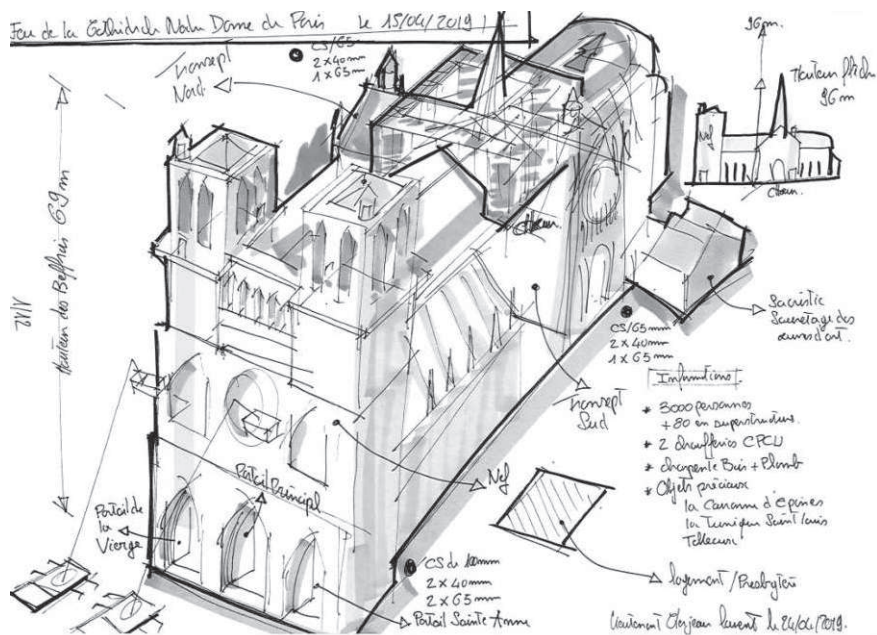 Feu de la Cathédrale Notre Dame de Paris le 15/04/2019
Transept
Nord
CS/65
2x40mm
1x65mm
96m.
Hauteur flèche
96m
Nef
Chœur.
Hauteur des Beffrois 69m
Chœur.
Sacristie
Sauvetage des
œuvres d'art.
CS/65mm
2x40mm
1x65mm
Transept
Sud
Informations.
* 3000 personnes
+80 en superstructure.
* 2 chaufferies CPCU
* charpente Bois + Plomb
* Objets précieux
la Couronne d'épines
la Tunique Saint louis
Tableaux
Nef
Portail Principal
Portail de
la
Vierge
CS de 100mm
2x40mm
2x65mm
Portail Sainte Anne
logement / Presbytère
Lieutenant laurent le 24/04/2019.